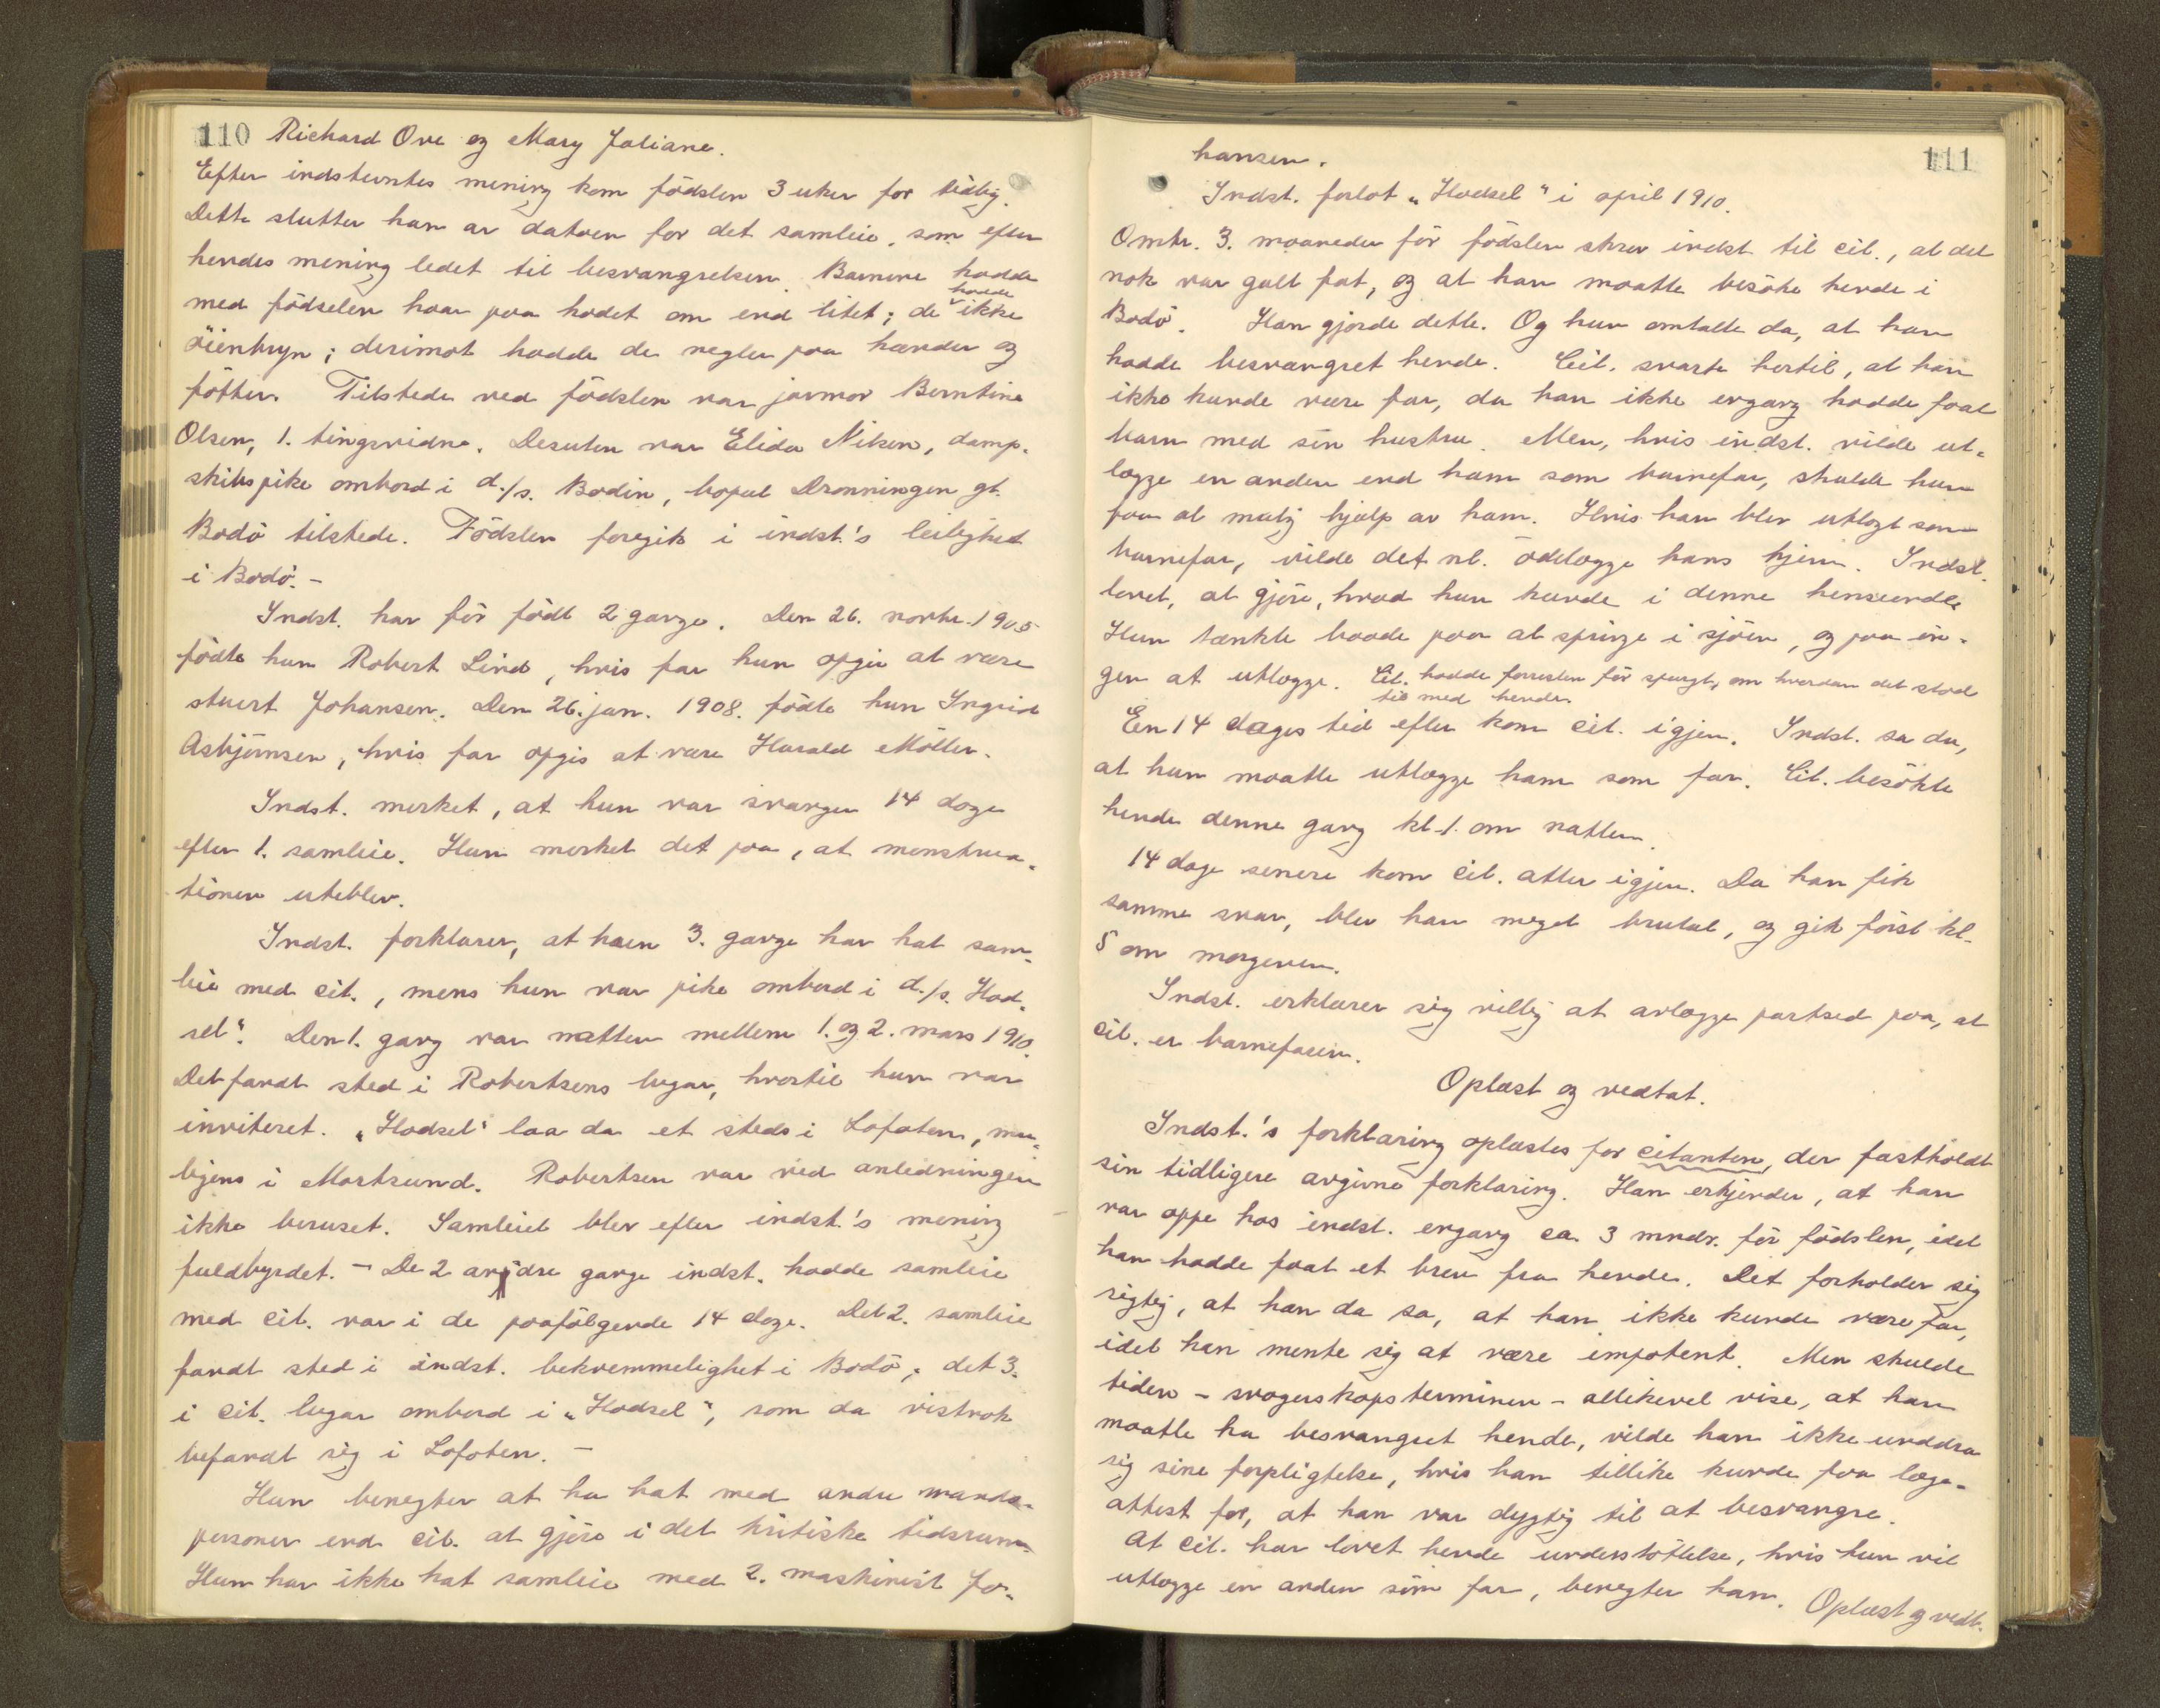 110 Richard Ove og Mary Juliane.
Efter indstevntes mening kom födslen 3 uker for tidlig.
Dette slutter han av datoen for det samleie, som efter
hendes mening ledet til besvangrelsen. Barnene hadde
med födselen haar paa hodet om end litet; de havde ikke
öienbryn; derimot hadde de negler paa hænder og
fötter. Tilstede ved födslen var jormor Berntine
Olsen, 1. tingsvidne. Desuten var Elida Nilsen, damp-
skibspike ombord i d./s. Bodin, bopæl Dronningen gt.
Bodö tilstede. Födslen foregik i indst.'s leilighet
i Bodö. -
Indst. har för födt 2 gange. Den 26. novbr. 1905
födte hun Robert Lind, hvis far hun opgir at være
stuert Johansen. Den 26. jan. 1908. födte hun Ingrid
Asbjörnsen, hvis far opgis at være Harald Möller.
Indst. merket, at hun var svanger 14 dage
efter 1. samleie. Hun merket det paa, at menstrua-
tionen uteblev.
Indst. forklarer, at hun 3. gange har hat sam-
leie med cit., mens hun var pike ombord i d./s. Had-
sel". Den 1. gang var natten mellem 1. og 2. mars 1910.
Det fandt sted i Robertsens lugar, hvortil hun var
inviteret. „Hadsel" laa da et steds i Lofoten, mu-
ligens i Mortsund. Robertsen var ved anledningen
ikke beruset. Samleiet blev efter indst.'s mening
fuldbyrdet. - De 2 andre gange indst. hadde samleie
med cit. var i de paafölgende 14 dage. Det 2. samleie
fandt sted i indst. bekvemmelighet i Bodö, det 3.
i cit. lugar ombord i „Hadsel", som da vistnok
befandt sig i Lofoten. -
Hun benegter at ha hat med andre mands-
personer end cit. at gjöre i det kritiske tidsrum.
Hun har ikke hat samleie med 2. maskinist Jo-
111
hansen.
Indst. forlot „Hadsel" i april 1910.
Omtr. 3. maaneder för födslen skrev indst. til cit., at det
nok var galt fat, og at han maatte besöke hende i
Bodö. Han gjorde dette. Og hun omtalte da, at han
hadde besvangret hende. Cit. svarte hertil, at han
ikke kunde være far, da han ikke engang hadde faat
barn med sin hustru. Men, hvis indst. vilde ut-
lægge en anden end ham som barnefar, skulde hun
faa al mulig hjælp av ham. Hvis han blev utlagt som
barnefar, vilde det nl. ödelægge hans hjem. Indst.
lovet, at gjöre, hvad hun kunde i denne henseende.
Hun tænkte baade paa at springe i sjöen, og paa in-
gen at utlægge. Cit. hadde forresten för spurgt, om hvordan det stod
til med hende.
En 14 dages tid efter kom cit. igjen. Indst. sa da,
at hun maatte utlægge ham som far. Cit. besökte
hende denne gang kl. 1. om natten.
14 dage senere kom cit. atter igjen. Da han fik
samme svar, blev han meget brutal, og gik först kl.
5 om morgenen.
Indst. erklærer sig villig at avlægge partsed paa, at
cit. er barnefaren.
Oplæst og vedtat.
Indst.'s forklaring oplæstes for citanten, der fastholdt
sin tidligere avgivne forklaring. Han erkjender, at han
var oppe hos indst. engang ca. 3 mndr. för födslen, idet
han hadde faat et brev fra hende. Det forholder sig
rigtig, at han da sa, at han ikke kunde være far,
idet han mente sig at være impotent. Men skulde
tiden - svangerskapsterminen - allikevel vise, at han
maatte ha besvangret hende, vilde han ikke unddra
sig sine forpligtelse, hvis han tillike kunde faa læge-
attest for, at han var dygtig til at besvangre.
At cit. har lovet hende understöttelse, hvis hun vil
utlægge en anden som far, benegter han. Oplæst og vedt.